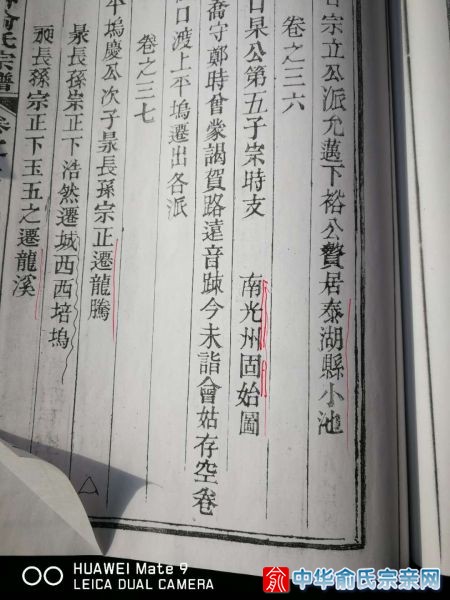 宗立公派允邁下裕公贅居泰湖縣小池
卷之三六
口杲公第五子宗時支 南光州固始圖
喬守鄭時會蒙謁賀路遠音踈今未詣會姑存空卷
口渡上平塢遷出各派
卷之三七
平塢慶公次子晟長孫宗正遷龍騰
晟長孫宗正下浩然遷城西西培塢
長孫宗正下玉五之遷龍溪
俞氏宗譜
HUAWEI Mate 9
LEICA DUAL CAMERA
俞 中华俞氏宗亲网